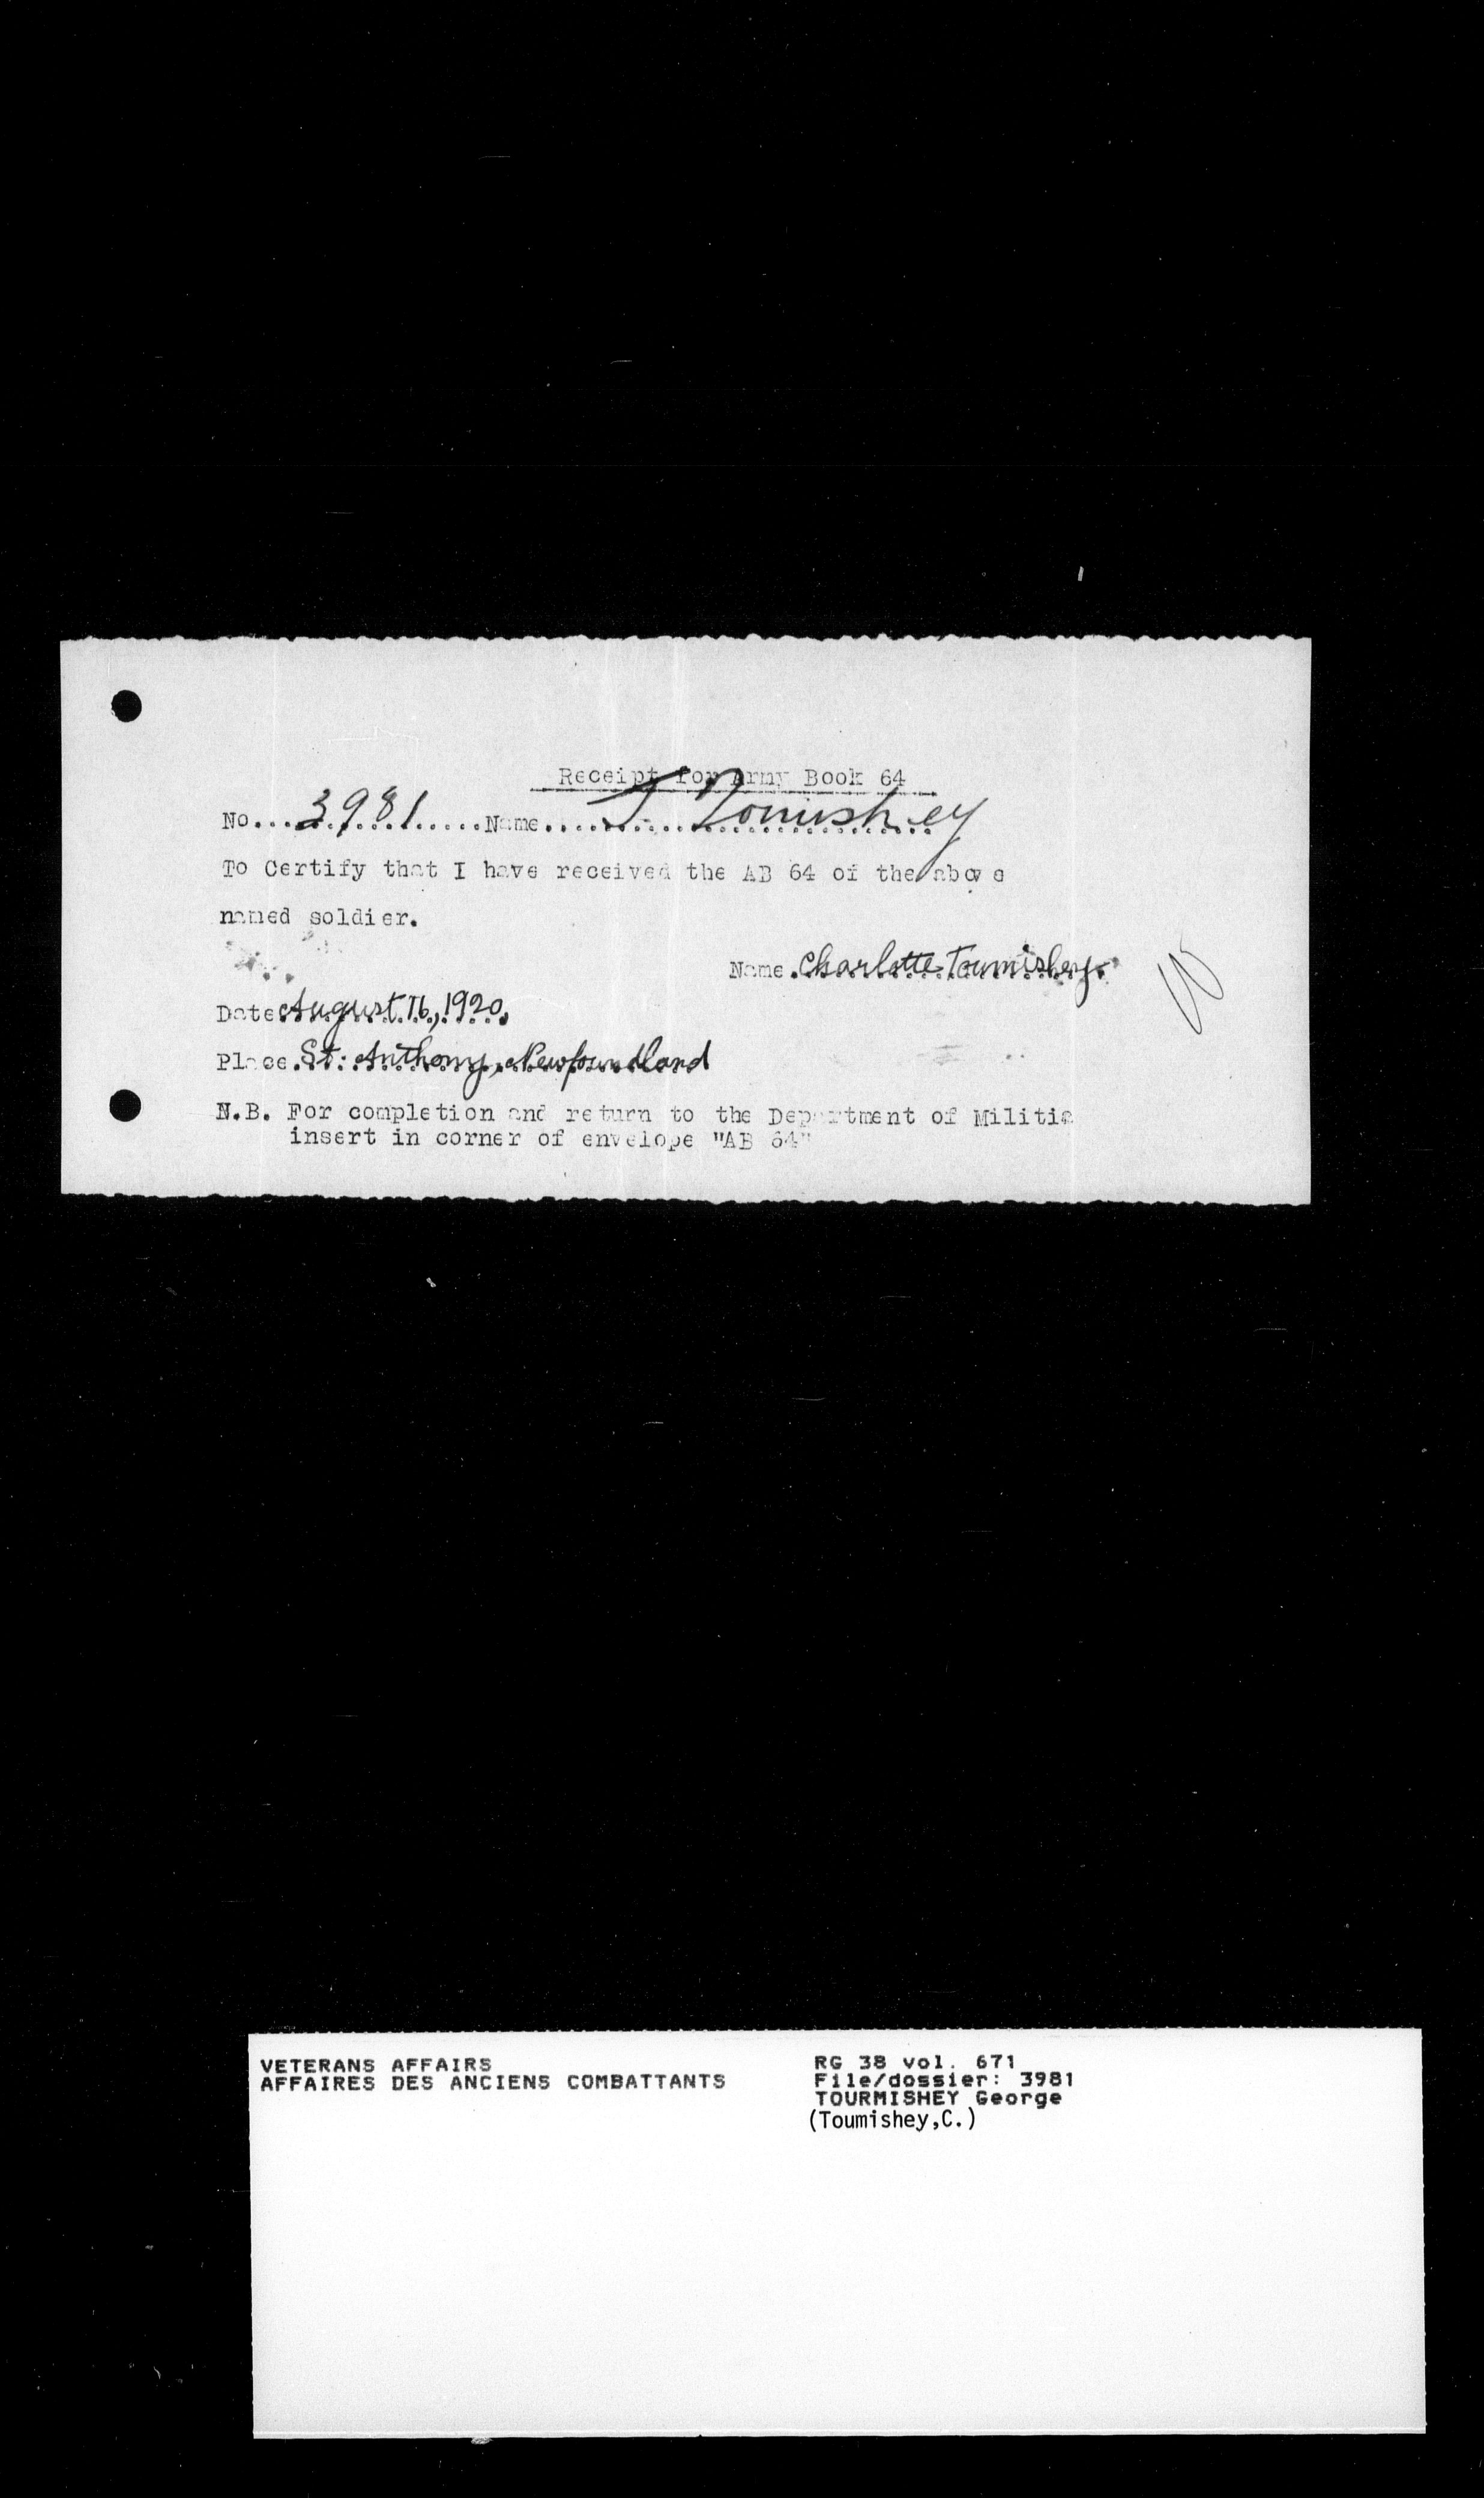 Receipt for Army Book 64
No....3981.....Name....J Tomishey
To Certify that I have received the AB 64 of the above
named soldier.
Name.Charlotte Toumishey.
Date August 16, 1920.
Place.St. Anthony, Newfoundland
N.B. For completion and return to the Department of Militia
insert in corner of envelope "AB 64"
VETERANS AFFAIRS
AFFAIRES DES ANCIENS COMBATTANTS
RG 38 vol. 671
File/dossier: 3981
TOURMISHEY George
(Toumishey,C.)